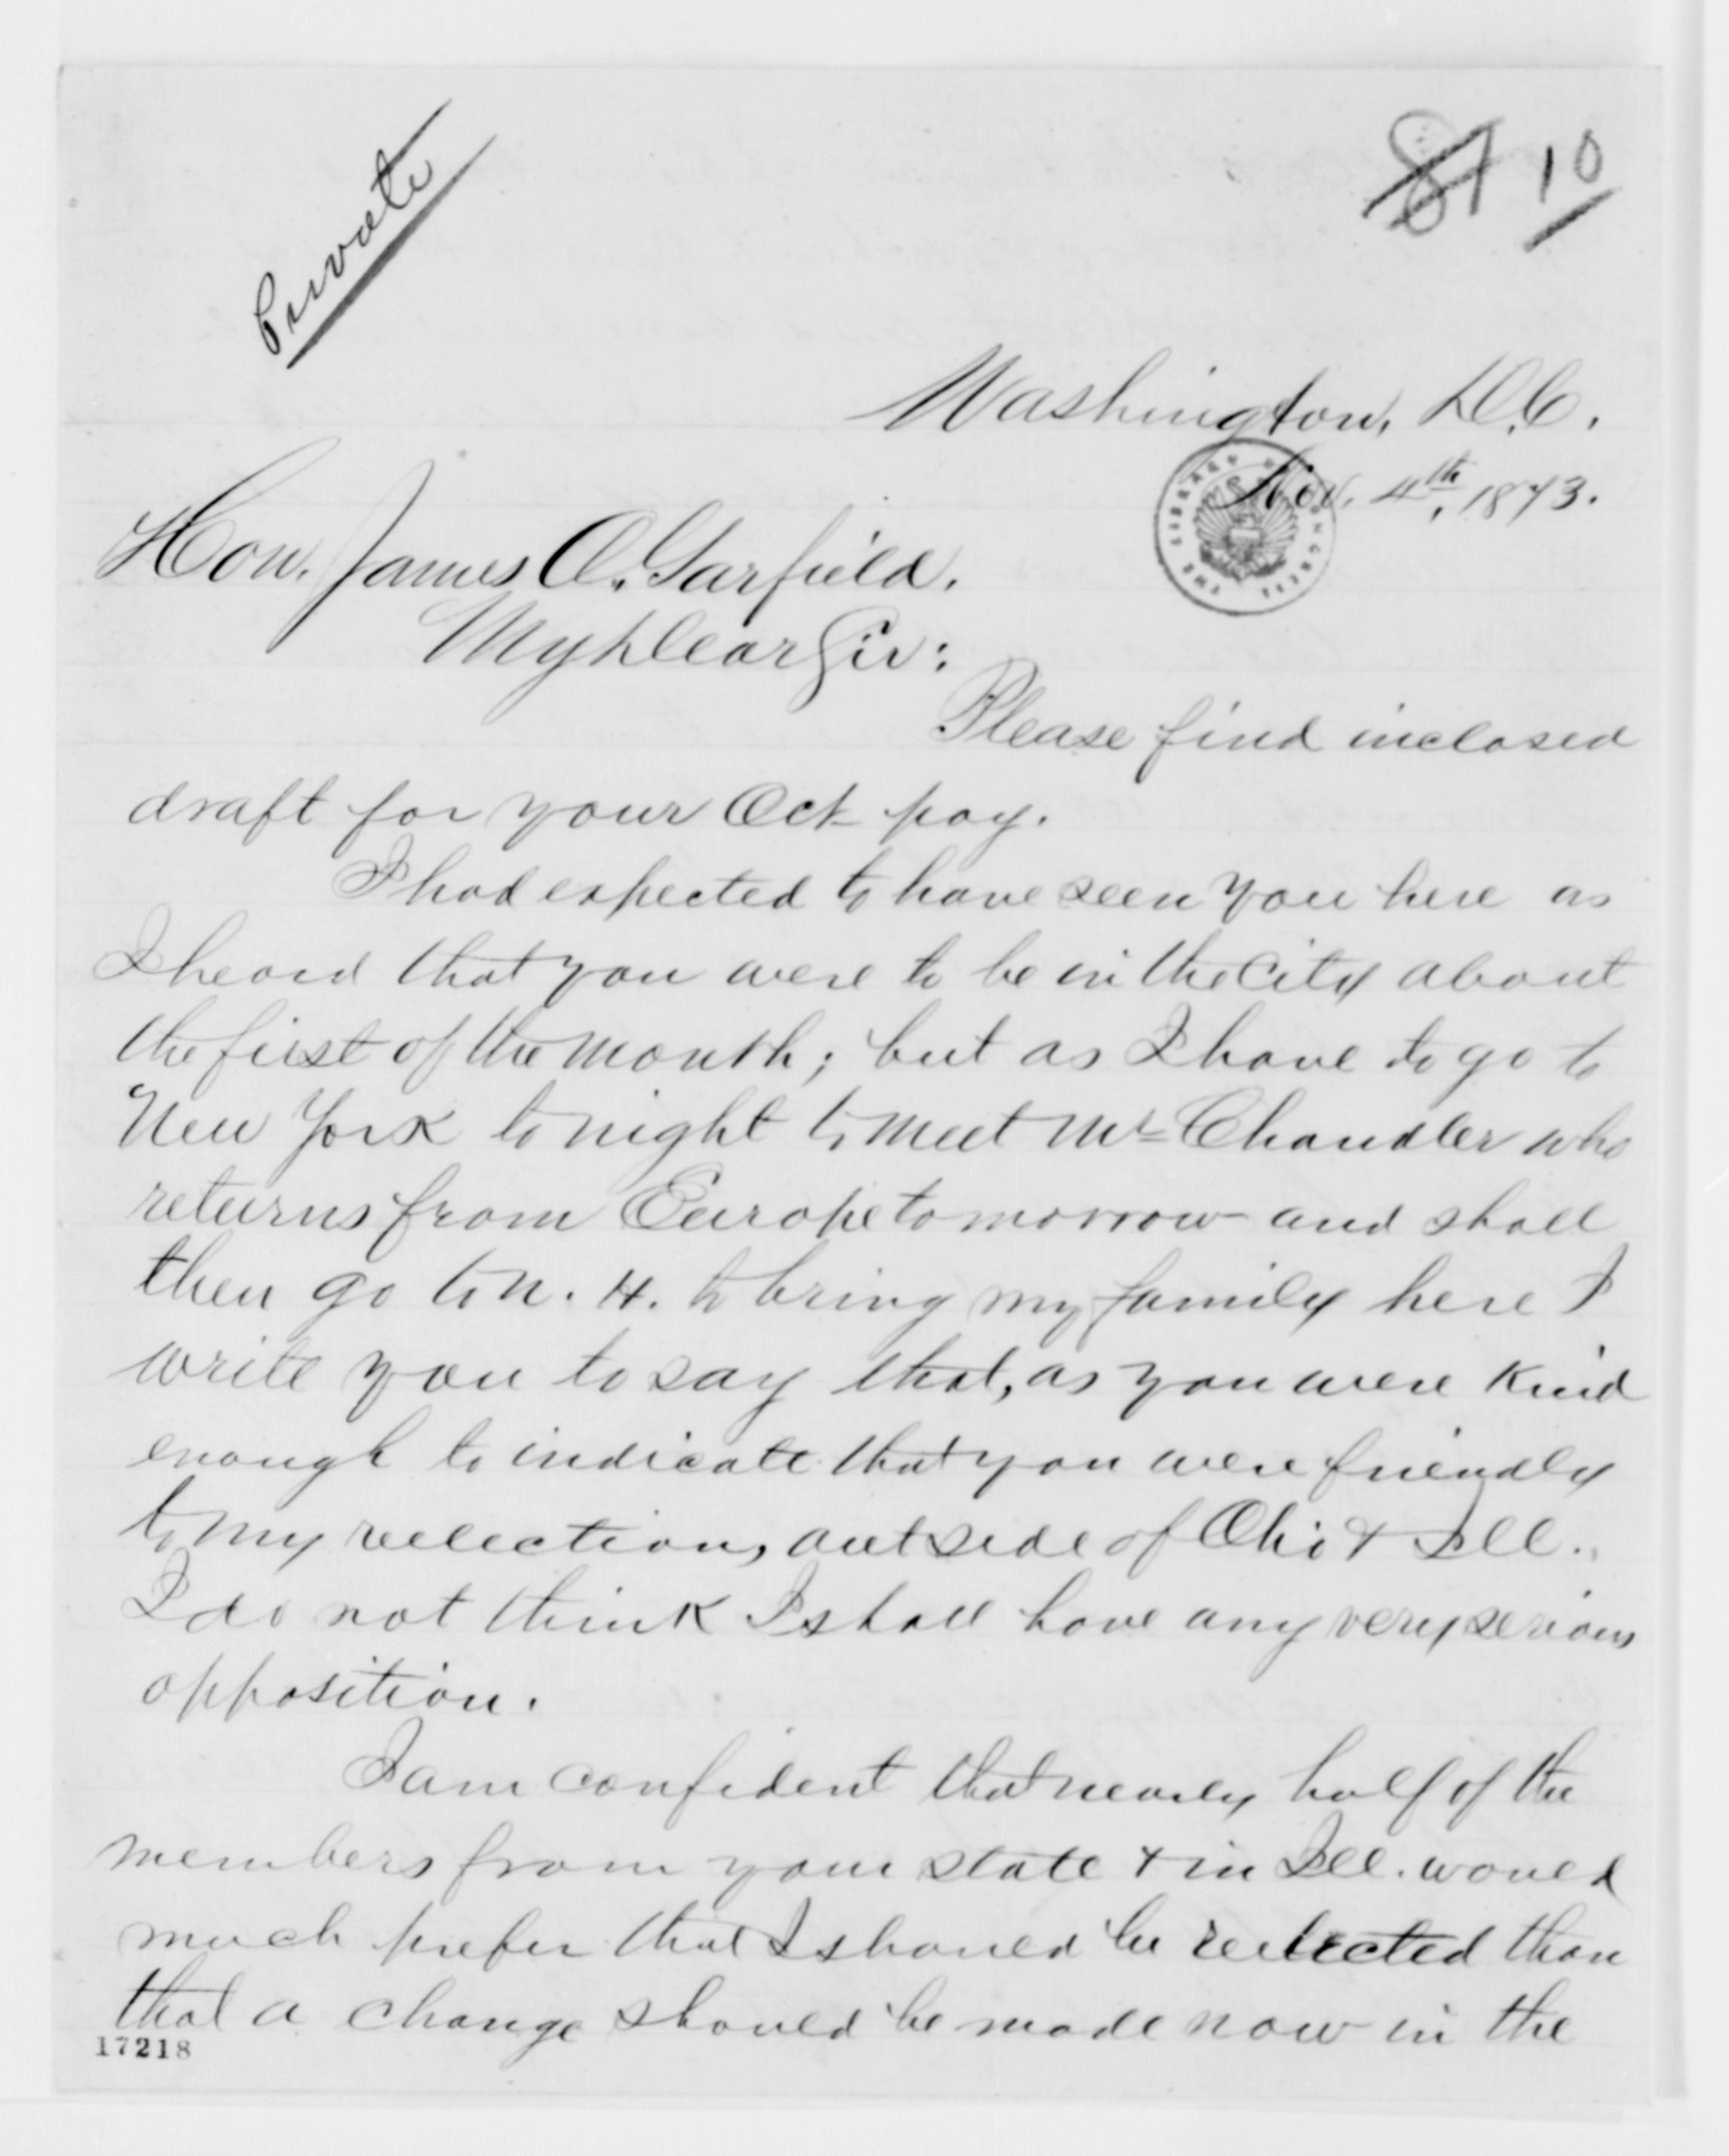 Private
81 10
Washington, D.C.
Nov. 4th, 1873.
THE LIBRARY OF CONGRESS
Hon. James A. Garfield.
My Dear Sir:
Please find inclosed
draft for your Oct pay.
I had expected to have seen you here as
I heard that you were to be in the City about
the first of the month; but as I have to go to
New York to night to meet Mr Chandler who
returns from Europe tomorrow and shall
then go to N. H. to bring my family here I
write you to say that, as you were kind
enough to indicate that you were friendly
to my relection, outside of Ohio & Ill.
I do not think I shall have any very serious
opposition.
I am confident that nearly half of the
members from your state & in Ill. would
much prefer that I should be reelected than
that a change should be made now in the
17218